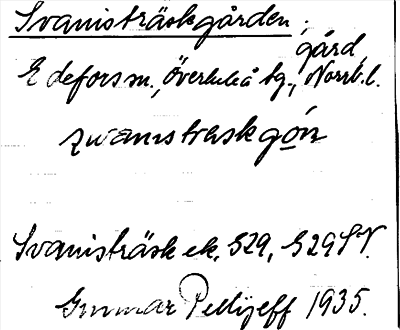 Svanisträskgården,
gård,
Edefors sn., Överluleå tg., Norrb. l.
svanistraskgo̲n
Svanisträsk ek. 529, G29SV.
Gunnar Pellijeff 1935.